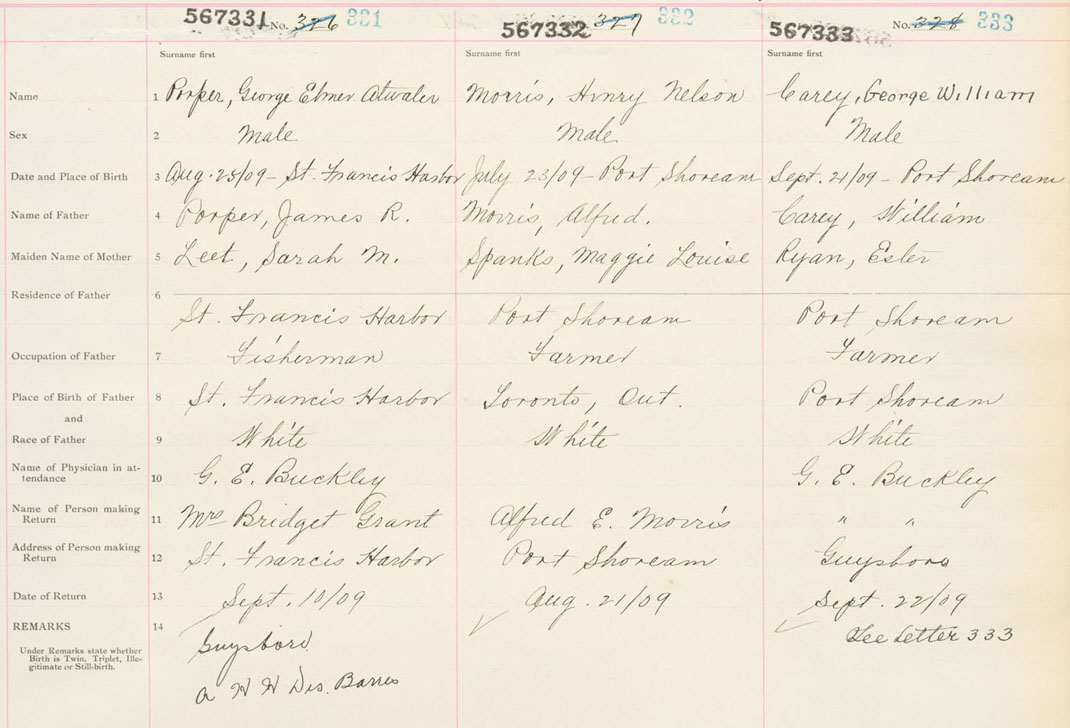 567331 No. 326 331 567332 327 332 567333 No. 328 333
Surname first Surname first Surname first
Name 1 Porper, George Elmer Atwater Morris, Henry Nelson Carey, George William
Sex 2 Male Male Male
Date and Place of Birth 3 Aug. 25/09 - St. Francis Harbor July 23/09 - Port Shoream Sept. 21/09 - Port Shoream
Name of Father 4 Porper, James R. Morris, Alfred. Carey, William
Maiden Name of Mother 5 Leet, Sarah M. Spanks, Maggie Louise Ryan, Ester
Residence of Father 6
St. Francis Harbor Port Shoream Port Shoream
Occupation of Father 7 Fisherman Farmer Farmer
Place of Birth of Father 8 St. Francis Harbor Toronto, Ont. Port Shoream
and
Race of Father 9 White White White
Name of Physician in at-
tendance 10 G. E. Buckley G. E. Buckley
Name of Person making
Return 11 Mrs Bridget Grant Alfred E. Morris " "
Address of Person making
Return 12 St. Francis Harbor Port Shoream Guysboro
Date of Return 13 Sept. 10/09 Aug. 21/09 Sept. 22/09
REMARKS 14 Guysboro See Letter 333
Under Remarks state whether
Birth is Twin, Triplet, Ille-
gitimate or Still-birth.
W H Des. Barres